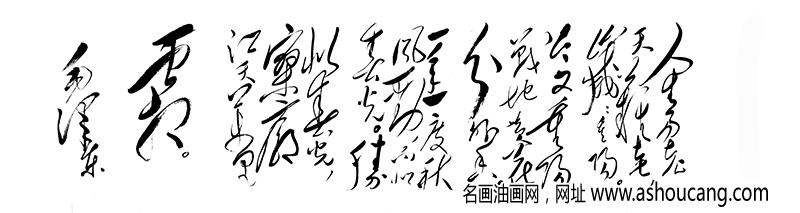 人生易老
天難老，
歲歲重陽。
今又重陽
戰地黄花
分外香。
一年一度秋
風勁不似
春光。勝
似春光，
寥廓
江天萬里
霜。
毛澤東
名画油画网，网址 www.ashoucang.com